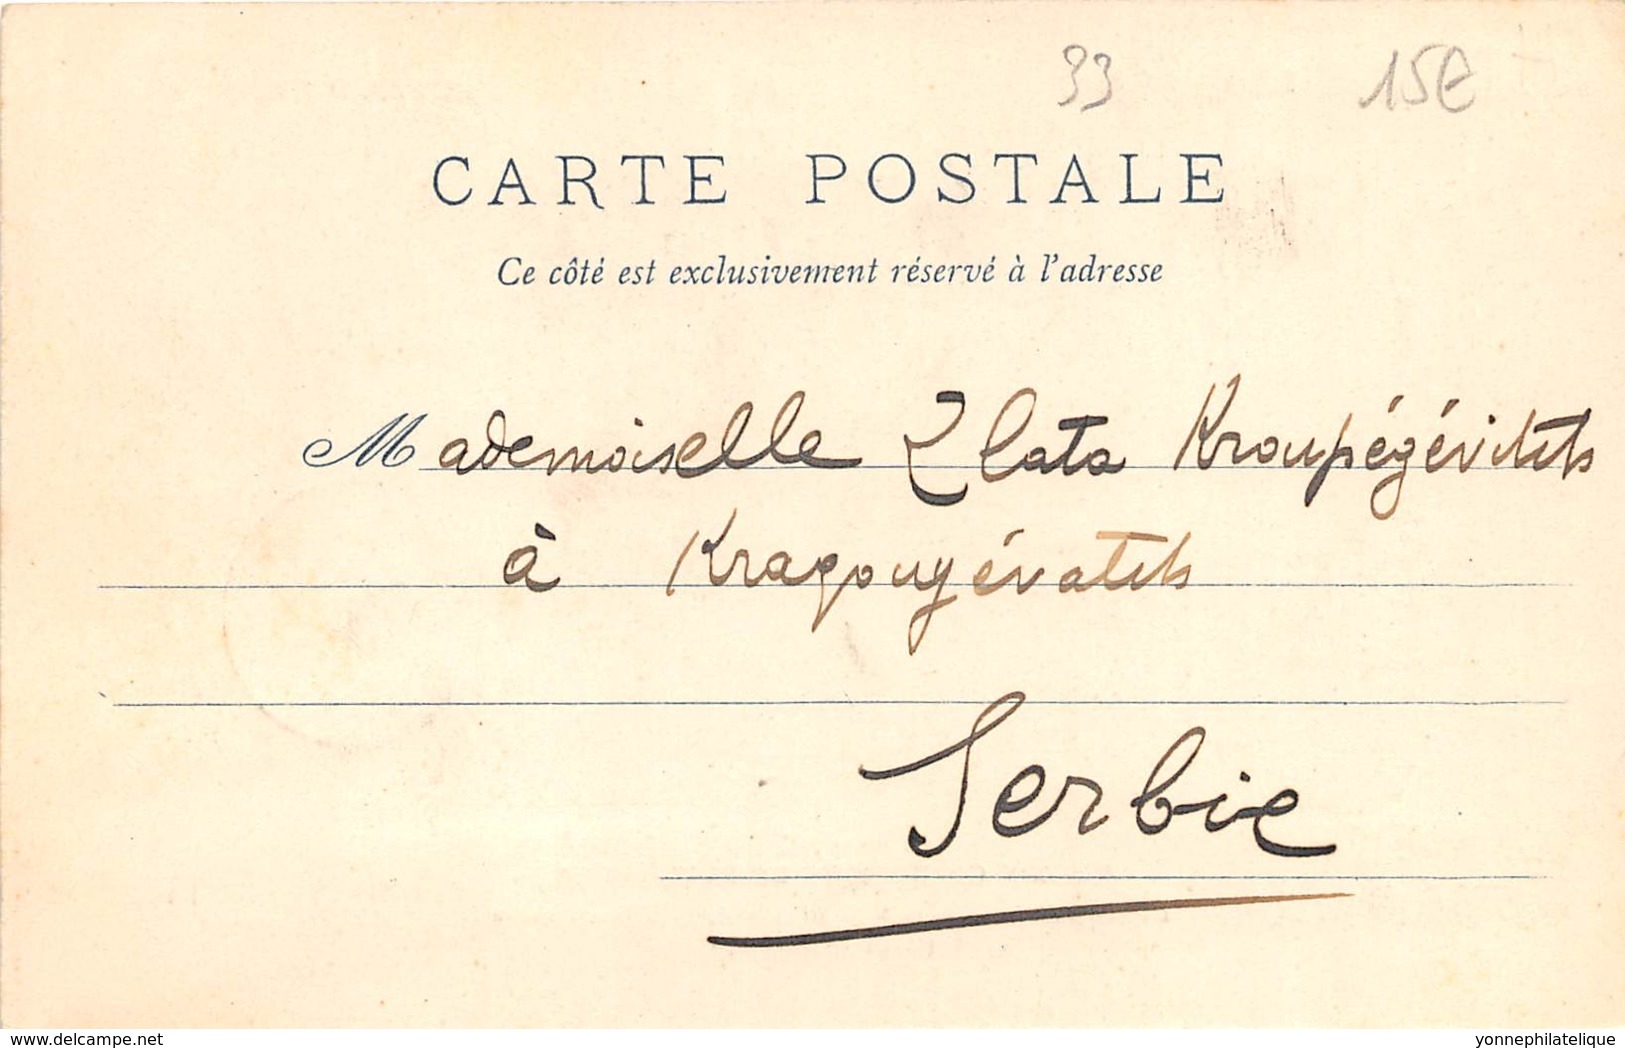 33 15€
CARTE POSTALE
Ce côté est exclusivement réservé à l'adresse
Mademoiselle Zlata Kroupégévitch
à Kragougévatch
Serbie
delcampe.net
yonnephilatelique